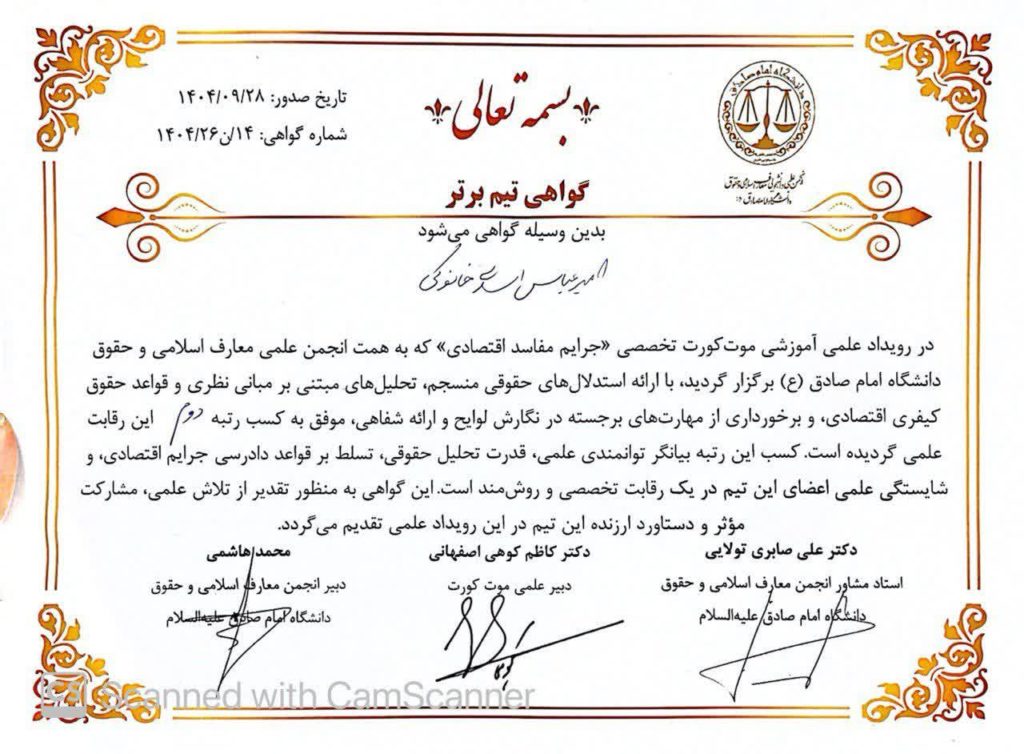 بسمه تعالی
تاریخ صدور: ۱۴۰۴/۰۹/۲۸
شماره گواهی: ۱۴/ن/۱۴۰۴/۲۶
گواهی تیم برتر
بدین وسیله گواهی می‌شود
امیرعباس اسدی خانوکی
در رویداد علمی آموزشی موت‌کورت تخصصی «جرایم مفاسد اقتصادی» که به همت انجمن علمی معارف اسلامی و حقوق
دانشگاه امام صادق (ع) برگزار گردید، با ارائه استدلال‌های حقوقی منسجم، تحلیل‌های مبتنی بر مبانی نظری و قواعد حقوق
کیفری اقتصادی، و برخورداری از مهارت‌های برجسته در نگارش لوایح و ارائه شفاهی، موفق به کسب رتبه دوم این رقابت
علمی گردیده است. کسب این رتبه بیانگر توانمندی علمی، قدرت تحلیل حقوقی، تسلط بر قواعد دادرسی جرایم اقتصادی، و
شایستگی علمی اعضای این تیم در یک رقابت تخصصی و روش‌مند است. این گواهی به منظور تقدیر از تلاش علمی، مشارکت
مؤثر و دستاورد ارزنده این تیم در این رویداد علمی تقدیم می‌گردد.
دکتر علی صابری تولایی
استاد مشاور انجمن معارف اسلامی و حقوق
دانشگاه امام صادق علیه‌السلام
دکتر کاظم کوهی اصفهانی
دبیر علمی موت کورت
محمد هاشمی
دبیر انجمن معارف اسلامی و حقوق
دانشگاه امام صادق علیه‌السلام
Scanned with CamScanner